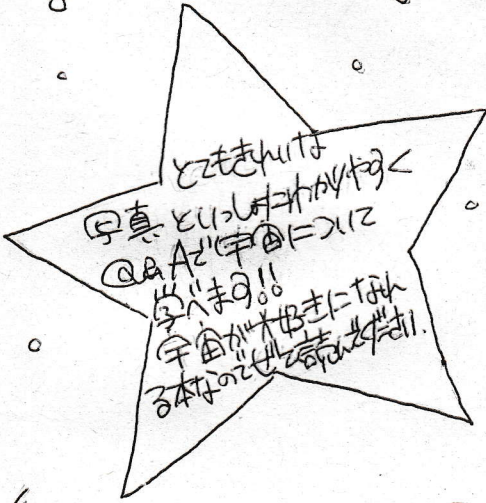 とてもきれいな
写真といっしょにわかりやすく
Q&Aで宇宙について
学べます!!
宇宙が大好きになれ
る本なのでぜひ読んでください.